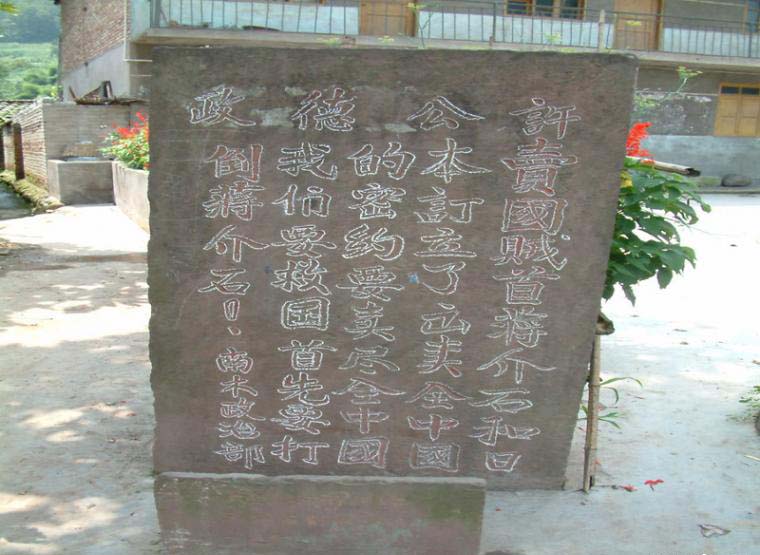 許公德政
賣國賊首蒋介石和日
本訂立了出卖全中國
的密約要卖尽全中國
我们要救国首先要打
倒蒋介石！南木政治部